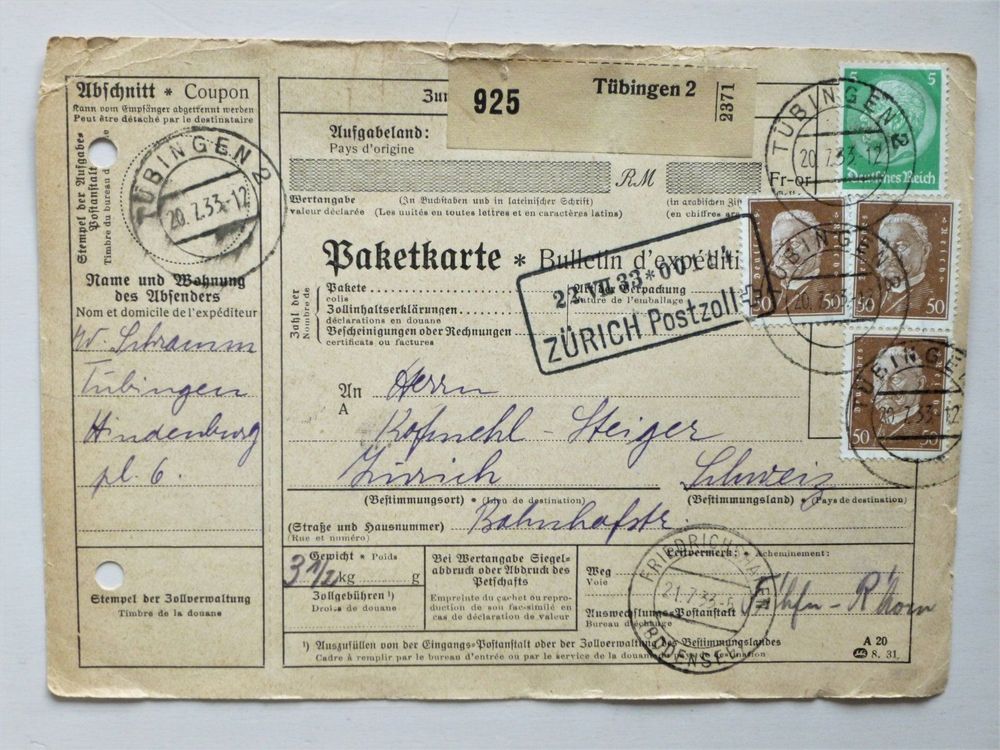 Abschnitt * Coupon
Kann vom Empfänger abgetrennt werden
Peut être détaché par le destinataire
Stempel der Aufgabe-Postanstalt
Timbre du bureau d
TÜBINGEN 2
20.7.33.-12
Name und Wohnung
des Absenders
Nom et domicile de l'expéditeur
W. Schramm
Tübingen
Hindenburg
pl. 6.
Stempel der Zollverwaltung
Timbre de la douane
Zur
925
Tübingen 2
2371
Aufgabeland:
Pays d'origine
RM
Wertangabe
valeur déclarée
(In Buchstaben und in lateinischer Schrift)
(Les unités en toutes lettres et en caractères latins)
(in arabischen Zif
(en chiffres ara
Fr-or
Paketkarte * Bulletin d'expéditi
Zahl der
Nombre de
Pakete
colis
Zollinhaltserklärungen
déclarations en douane
Bescheinigungen oder Rechnungen
certificats ou factures
Art der Verpackung
Nature de l'emballage
22.VII.33*
ZÜRICH Postzoll
5 5
Deutsches Reich
TÜBINGEN 2
20.7.33.-12
50 50
50
TÜBINGEN 2
50 50
TÜBINGEN
20.7.33.-12
An
A
Herrn
Kofmehl-Steiger
Zürich
Schweiz
(Bestimmungsort) * (Lieu de destination)
(Bestimmungsland) * (Pays de destination)
(Straße und Hausnummer)
(Rue et numéro)
Bahnhofstr.
Gewicht * Poids
3 1/2 kg g
Zollgebühren ¹)
Droits de douane
Bei Wertangabe Siegel-
abdruck oder Abdruck des
Petschafts
Empreinte du cachet ou repro-
duction de son fac-similé en
cas de déclaration de valeur
Leitvermerk: * Acheminement:
Weg
Voie
Auswechslungs-Postanstalt
Bureau d'échange
FRIEDRICHSHAFEN
21.7.33.-6
(BODENSEE)
F'hfn - R'horn
¹) Auszufüllen von der Eingangs-Postanstalt oder der Zollverwaltung des Bestimmungslandes
Cadre à remplir par le bureau d'entrée ou par le service de la douane du pays de destination
A 20
8. 31.